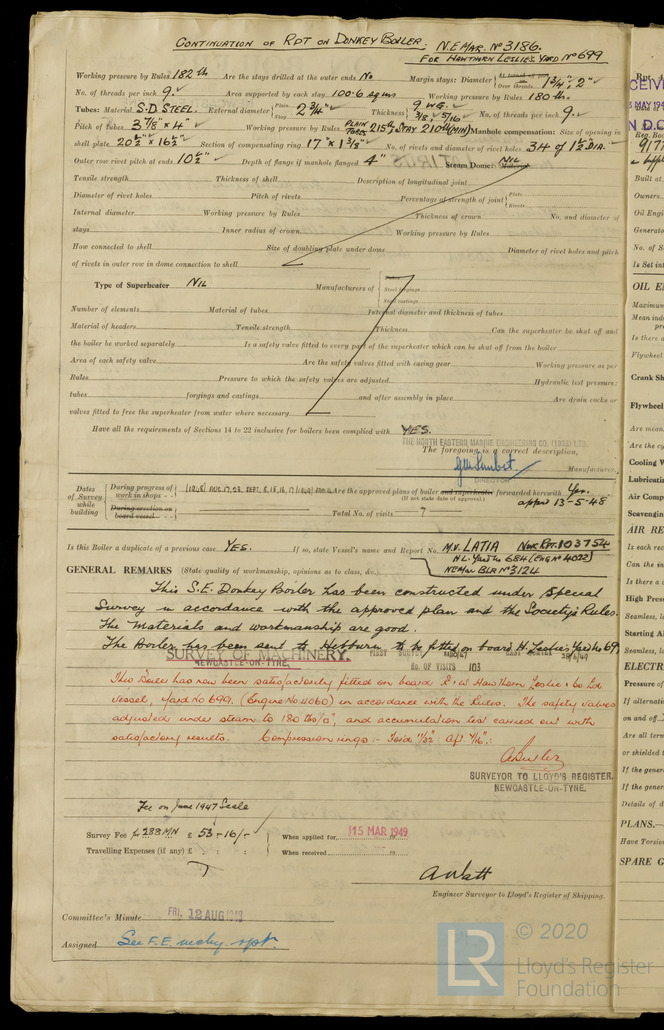 CONTINUATION OF RPT ON DONKEY BOILER: N.E.MAR. Nº3186.
FOR HAWTHORN LESLIE'S YARD Nº699
Working pressure by Rules 182 lb Are the stays drilled at the outer ends No Margin stays: Diameter 1 3/4", 2"
No. of threads per inch 9 Area supported by each stay 100·6 sq ins Working pressure by Rules 180 lb.
Tubes: Material S.D STEEL. External diameter Plain Stay 2 3/4" Thickness 9 W.G. 3/8 5/16 No. of threads per inch 9
Pitch of tubes 3 7/8" x 4" Working pressure by Rules PLAIN 215 STAY 210 lb (MIN) Manhole compensation: Size of opening in
shell plate 20 1/2" x 16 1/2" Section of compensating ring 17" x 1 3/8" No. of rivets and diameter of rivet holes 34 of 1 1/2 DIA.
Outer row rivet pitch at ends 10 1/2" Depth of flange if manhole flanged 4" Steam Dome: NIL
Tensile strength Thickness of shell Description of longitudinal joint
Diameter of rivet holes Pitch of rivets Percentage of strength of joint Plate Rivets
Internal diameter Working pressure by Rules Thickness of crown No. and diameter of
stays Inner radius of crown Working pressure by Rules
How connected to shell Size of doubling plate under dome Diameter of rivet holes and pitch
of rivets in outer row in dome connection to shell
Type of Superheater NIL Manufacturers of Tubes Steel forgings Steel castings
Number of elements Material of tubes Internal diameter and thickness of tubes
Material of headers Tensile strength Thickness Can the superheater be shut off and
the boiler be worked separately Is a safety valve fitted to every part of the superheater which can be shut off from the boiler
Area of each safety valve Are the safety valves fitted with easing gear Working pressure as per
Rules Pressure to which the safety valves are adjusted Hydraulic test pressure:
tubes forgings and castings and after assembly in place Are drain cocks or
valves fitted to free the superheater from water where necessary
Have all the requirements of Sections 14 to 22 inclusive for boilers been complied with YES.
THE NORTH EASTERN MARINE ENGINEERING CO. (1938) LTD.
The foregoing is a correct description,
DIRECTOR Manufacturer.
Dates of Survey while building During progress of work in shops - - Are the approved plans of boiler and superheater forwarded herewith Yes.
(If not state date of approval) appd 13-5-48
During erection on board vessel - - - Total No. of visits 7
Is this Boiler a duplicate of a previous case YES. If so, state Vessel's name and Report No. M.V. LATIA NWC RPT. 103754
H.L. Yard Nº 684 (ENG Nº 4022)
NEMAR BLR Nº 3124
GENERAL REMARKS (State quality of workmanship, opinions as to class, &c.)
This S.E. Donkey Boiler has been constructed under Special
Survey in accordance with the approved plan and the Society's Rules.
The Materials and workmanship are good.
The Boiler has been sent to Hebburn to be fitted on board H. Leslie's Yard No 699
SURVEY OF MACHINERY. FIRST SURVEY LAST SURVEY
NEWCASTLE-ON-TYNE. No. OF VISITS 103
This Boiler has now been satisfactorily fitted on board R & W. Hawthorn Leslie & Co Ltd
vessel, Yard No 699. (Engine No 4060) in accordance with the Rules. The safety valves
adjusted under steam to 180 lbs/□", and accumulation test carried out with
satisfactory results. Compression rings :- Ford 11/32" Aft 7/16".:
A Butler
SURVEYOR TO LLOYD'S REGISTER.
NEWCASTLE-ON-TYNE.
Fee on June 1947 Scale
Survey Fee for 288 MN £ 53 - 16/- When applied for 15 MAR 1949
Travelling Expenses (if any) £ : : When received 19
A Watt
Engineer Surveyor to Lloyd's Register of Shipping.
Committee's Minute FRI. 12 AUG 1949
Assigned See F.E. mchy. rpt.
LR © 2020
Lloyd's Register
Foundation